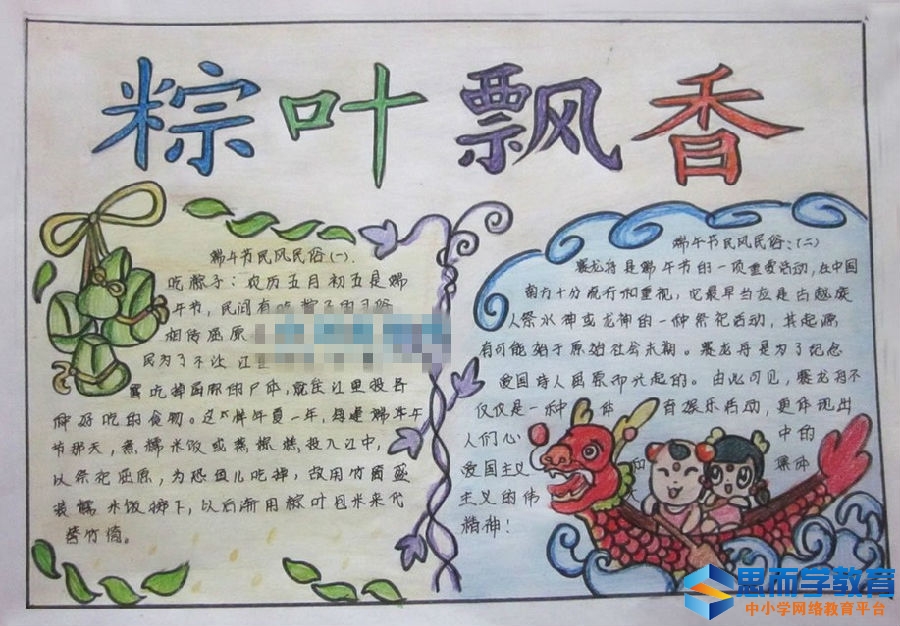 粽叶飘香
端午节民风民俗(一).
吃粽子:农历五月初五是端
午节,民间有吃粽子的习俗
相传屈原
民为了不让江里
吃掉屈原的尸体,就往江里投各
种好吃的食物。这样年复一年,每逢端午
节那天,煮糯米饭或蒸粽糕投入江中,
以祭祀屈原,为恐鱼儿吃掉,改用竹筒盛
装糯米饭掷下,以后渐用粽叶包米来代
替竹筒。
端午节民风民俗:(二)
赛龙舟是端午节的一项重要活动,在中国
南方十分流行和重视,它最早当应是古越族
人祭水神或龙神的一种祭祀活动,其起源
有可能始于原始社会末期。赛龙舟是为了纪念
爱国诗人屈原而兴起的。由此可见,赛龙舟不
仅仅是一种体育娱乐活动,更体现出
人们心中的
爱国主义和集体
主义的伟大
精神!
思而学教育
中小学网络教育平台